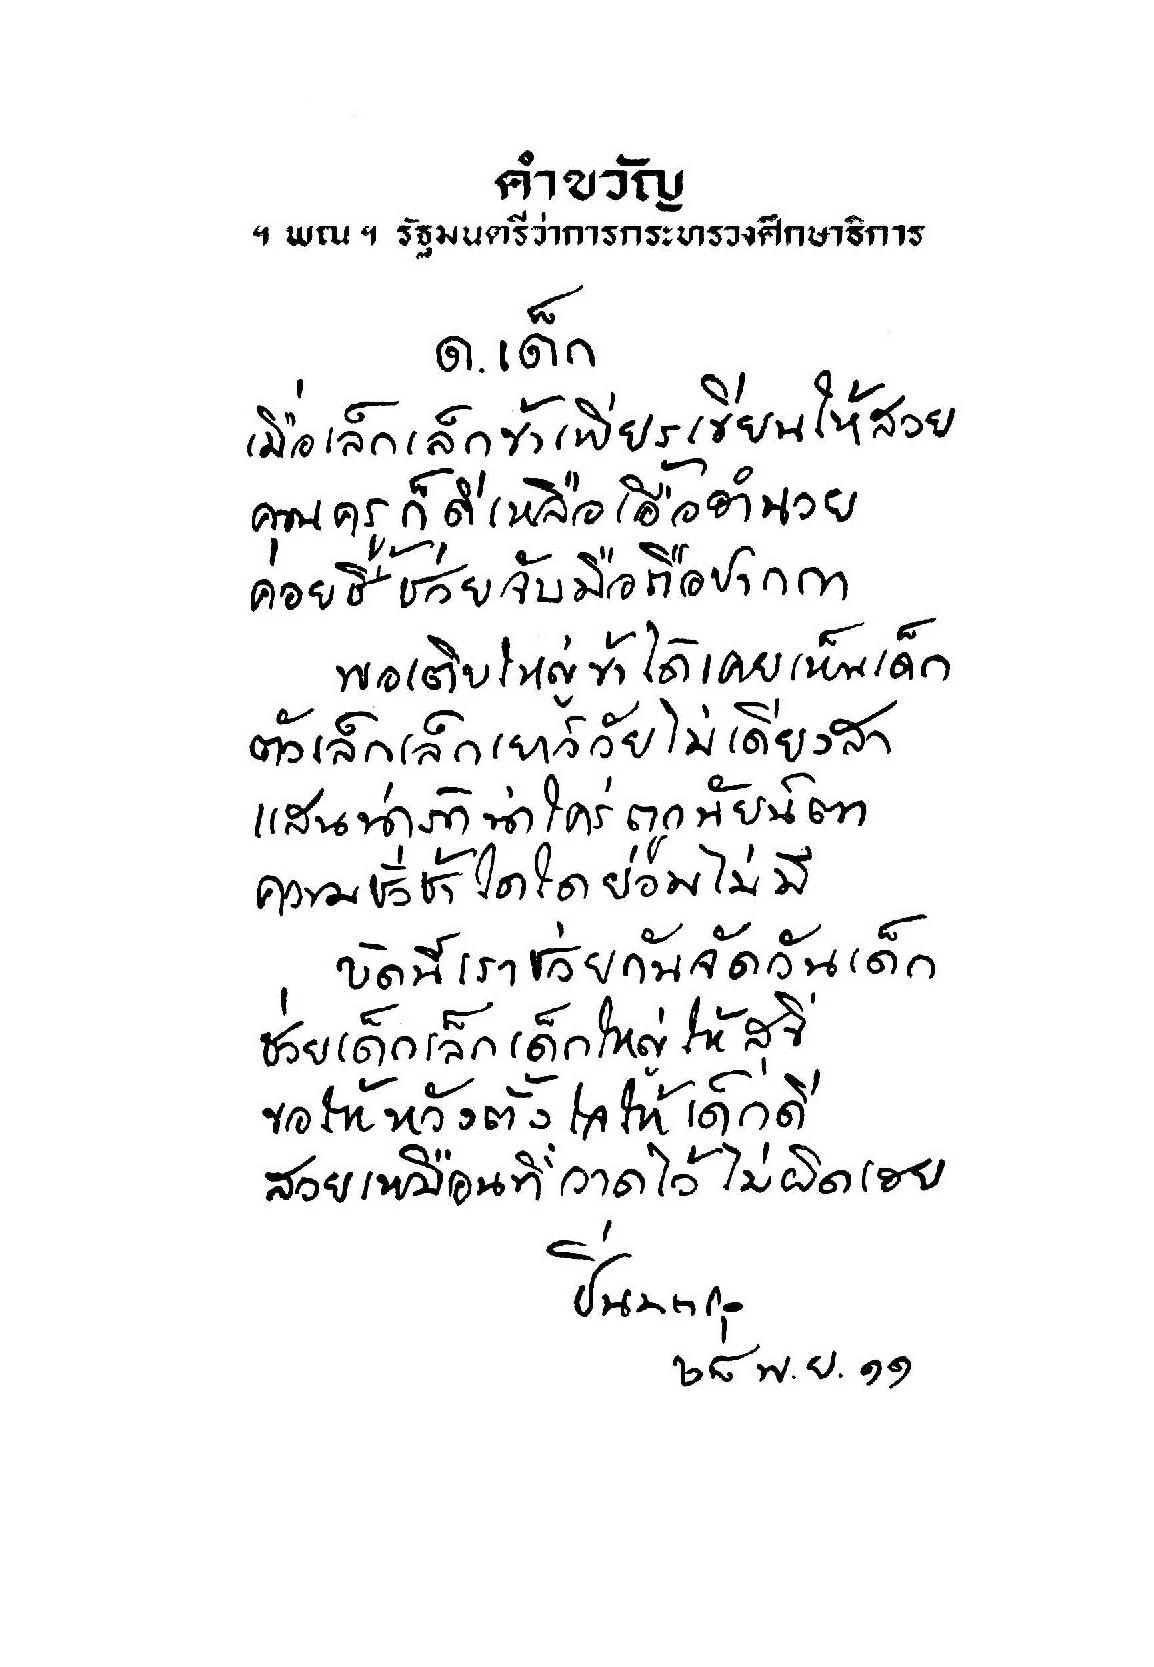 คำขวัญ
ฯ พณ ฯ รัฐมนตรีว่าการกระทรวงศึกษาธิการ
ด.เด็ก
เมื่อเล็กเล็กข้าเพียรเขียนให้สวย
คุณครูก็ดีเหลือเอื้ออำนวย
ค่อยชี้ช่วยจับมือถือปากกา
พอเติบใหญ่ข้าได้เคยเห็นเด็ก
ตัวเล็กเล็กเยาว์วัยไม่เดียงสา
แสนน่ารักน่าใคร่ถูกนัยน์ตา
ความชั่วช้าใดใดย่อมไม่มี
บัดนี้เราช่วยกันจัดวันเด็ก
ช่วยเด็กเล็กเด็กใหญ่ให้สุขี
ขอให้หวังตั้งใจให้เด็กดี
สวยเหมือนที่วาดไว้ไม่ผิดเอย
ปิ่น มาลากุล
๒๘ พ.ย. ๑๑